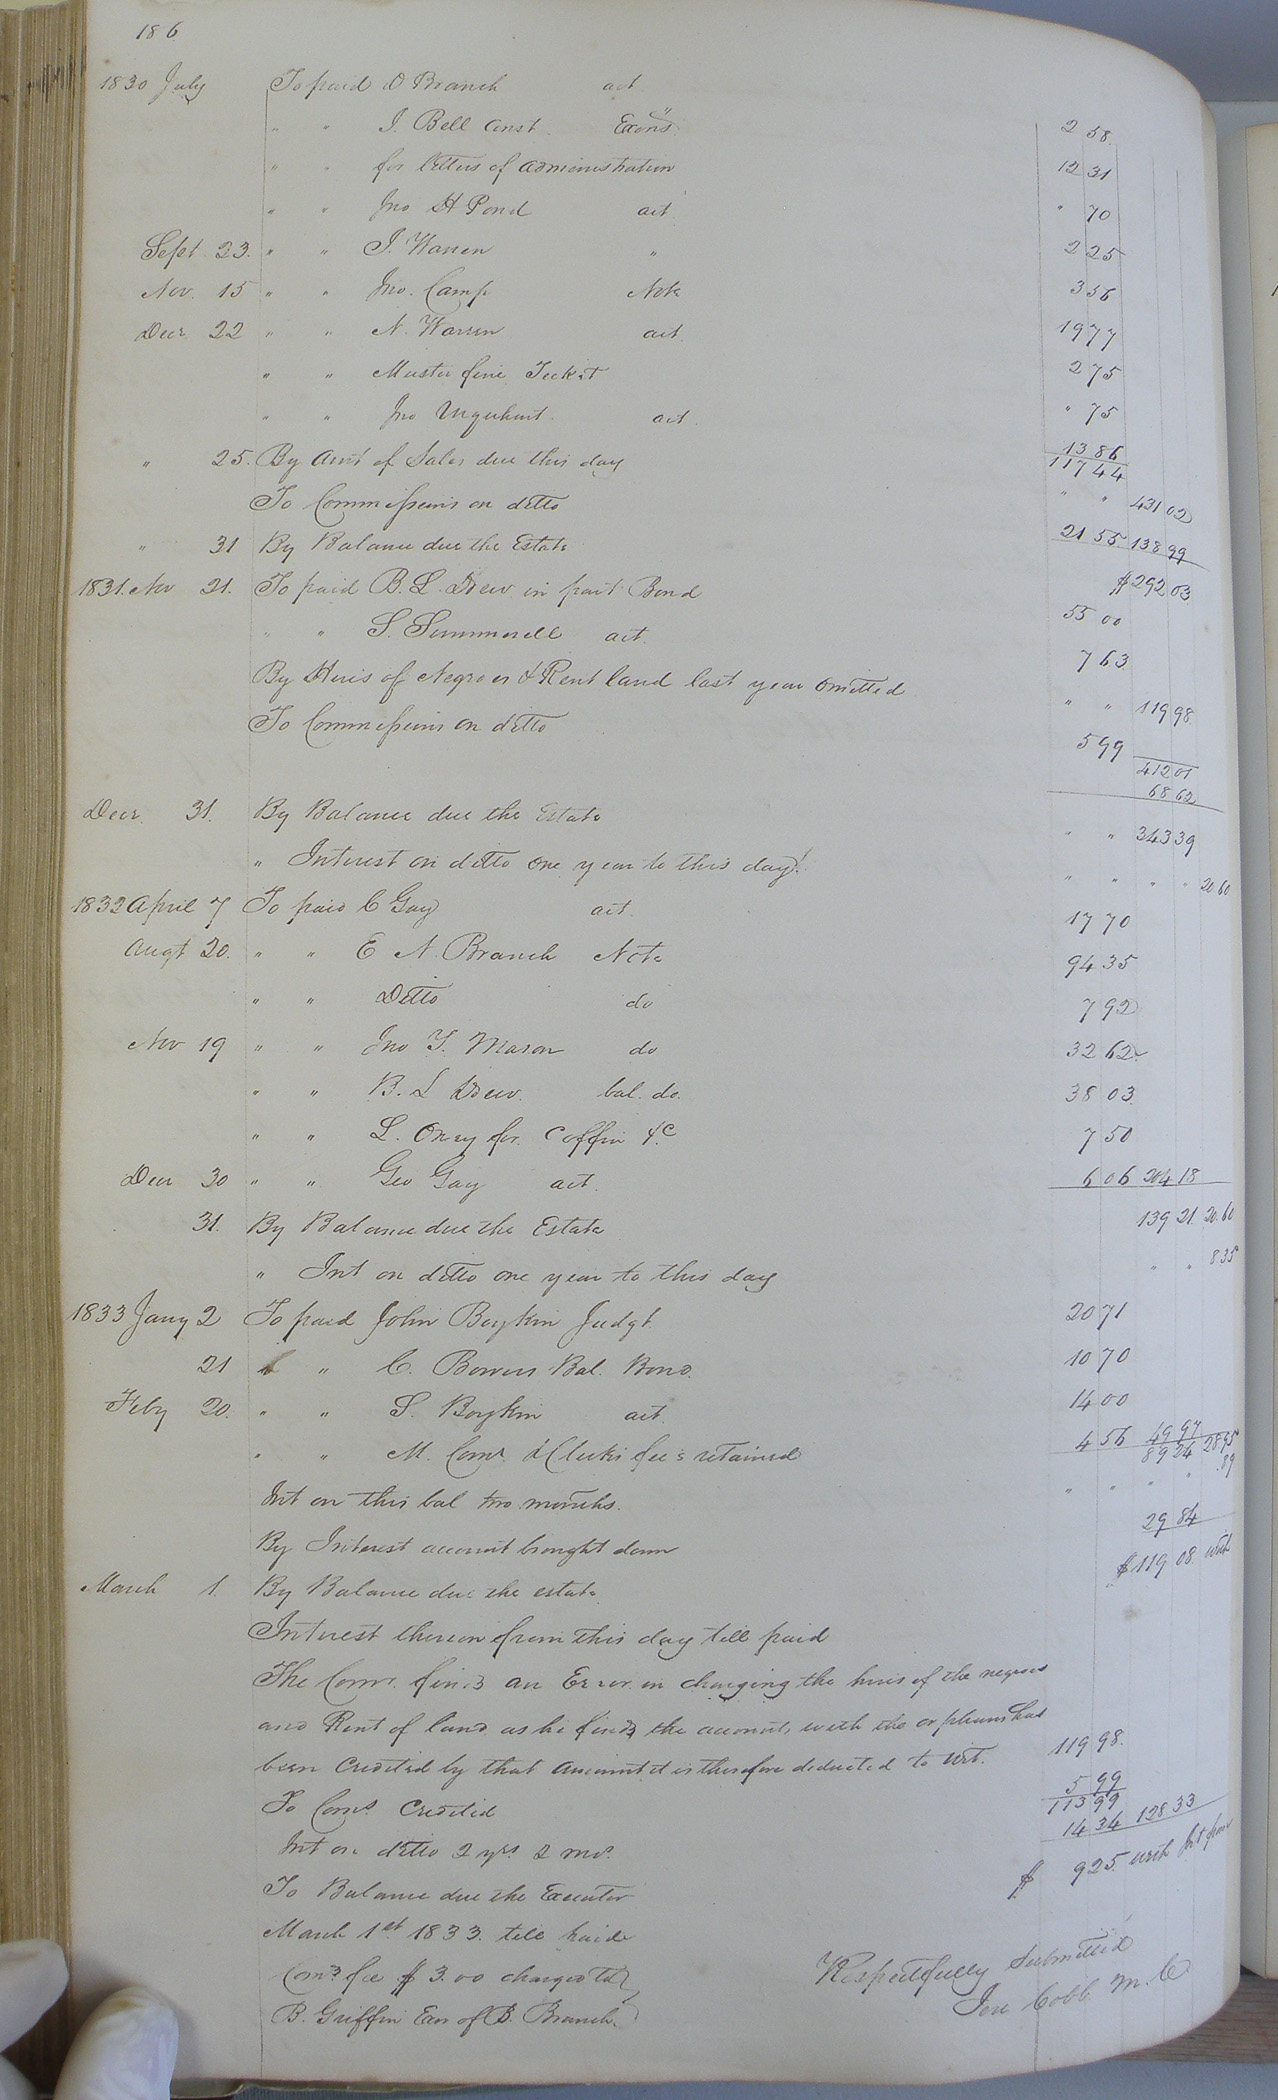 186
1830 July To paid D Branch act 2 58
" " J. Bell Const. Exons. 12 31
" " for letters of administration " 70
" " Jno H Pond act 2 25
Sept 23. " " J. Warren " 3 56
Nov. 15 " " Jno. Camp Note 19 77
Decr 22 " " N. Warren act. 2 75
" " Muster fine Ticket " 75
" " Jno Urquhart act. 13 86
117 44
" 25. By Amt of Sales due this day " " 431 02
To Commissions on ditto 21 55 138 99
" 31 By Balance due the Estate $292 03
1831. Nov 21. To paid B. L. Drew in part Bond 55 00
" " S. Summerell act. 7 63
By Hires of Negroes & Rent land last year omitted " " 119 98
To Commissions on ditto 5 99
412 01
68 62
Decr. 31. By Balance due the Estate " " 343 39
" Interest on ditto one year to this day " " " " 20.60
1832 April 7 To paid C Gay act 17 70
Augt 20. " " E N. Branch Note 94 35
" " Ditto do 7 92
Nov 19 " " Jno Y. Mason do 32 62
" " B. L Drew. bal. do. 38 03
" " L. for Coffin &c 7 50
Decr 30 " " Geo Gay act. 6 06 204 18
31. By Balance due the Estate 139 21 20.60
" Int on ditto one year to this day " " 8.35
1833 Jany 2 To paid John Boykin Judgt. 20 71
21 " " C. Bowers Bal. Bond. 10 70
Feby 20. " " S. Boykin act. 14 00
" " M. Comr & Clerks fees retained 4 56 49 97 28.95
89 24
Int on this bal two months. " " " " .89
By Interest account brought down 29 84
March 1. By Balance due the estate $119 08 with
Interest thereon from this day till paid
The Comr. finds an Error in charging the hires of the negroes
and Rent of land as he finds the accounts with the orphans had
been credited by that amount it is therefore deducted to wit. 119 98.
To Coms Credited 5 99
113 99
Int on ditto 2 yrs 2 mos. 14 34 128 33
To Balance due the Executor $ 9 25 with Int from
March 1st 1833. till paid
Comrs fee $ 3.00 charged to
B. Griffin Exr of B. Branch.
Respectfully Submitted
Cobb M. C